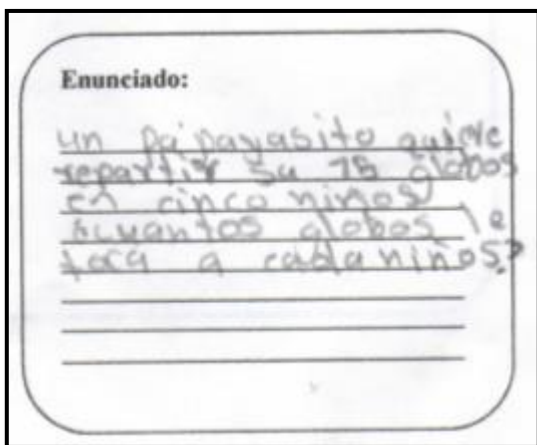 Enunciado:
un pa'payasito quiere
repartir su 75 globos
en cinco niños
¿cuantos globos le
toca a cada niños?